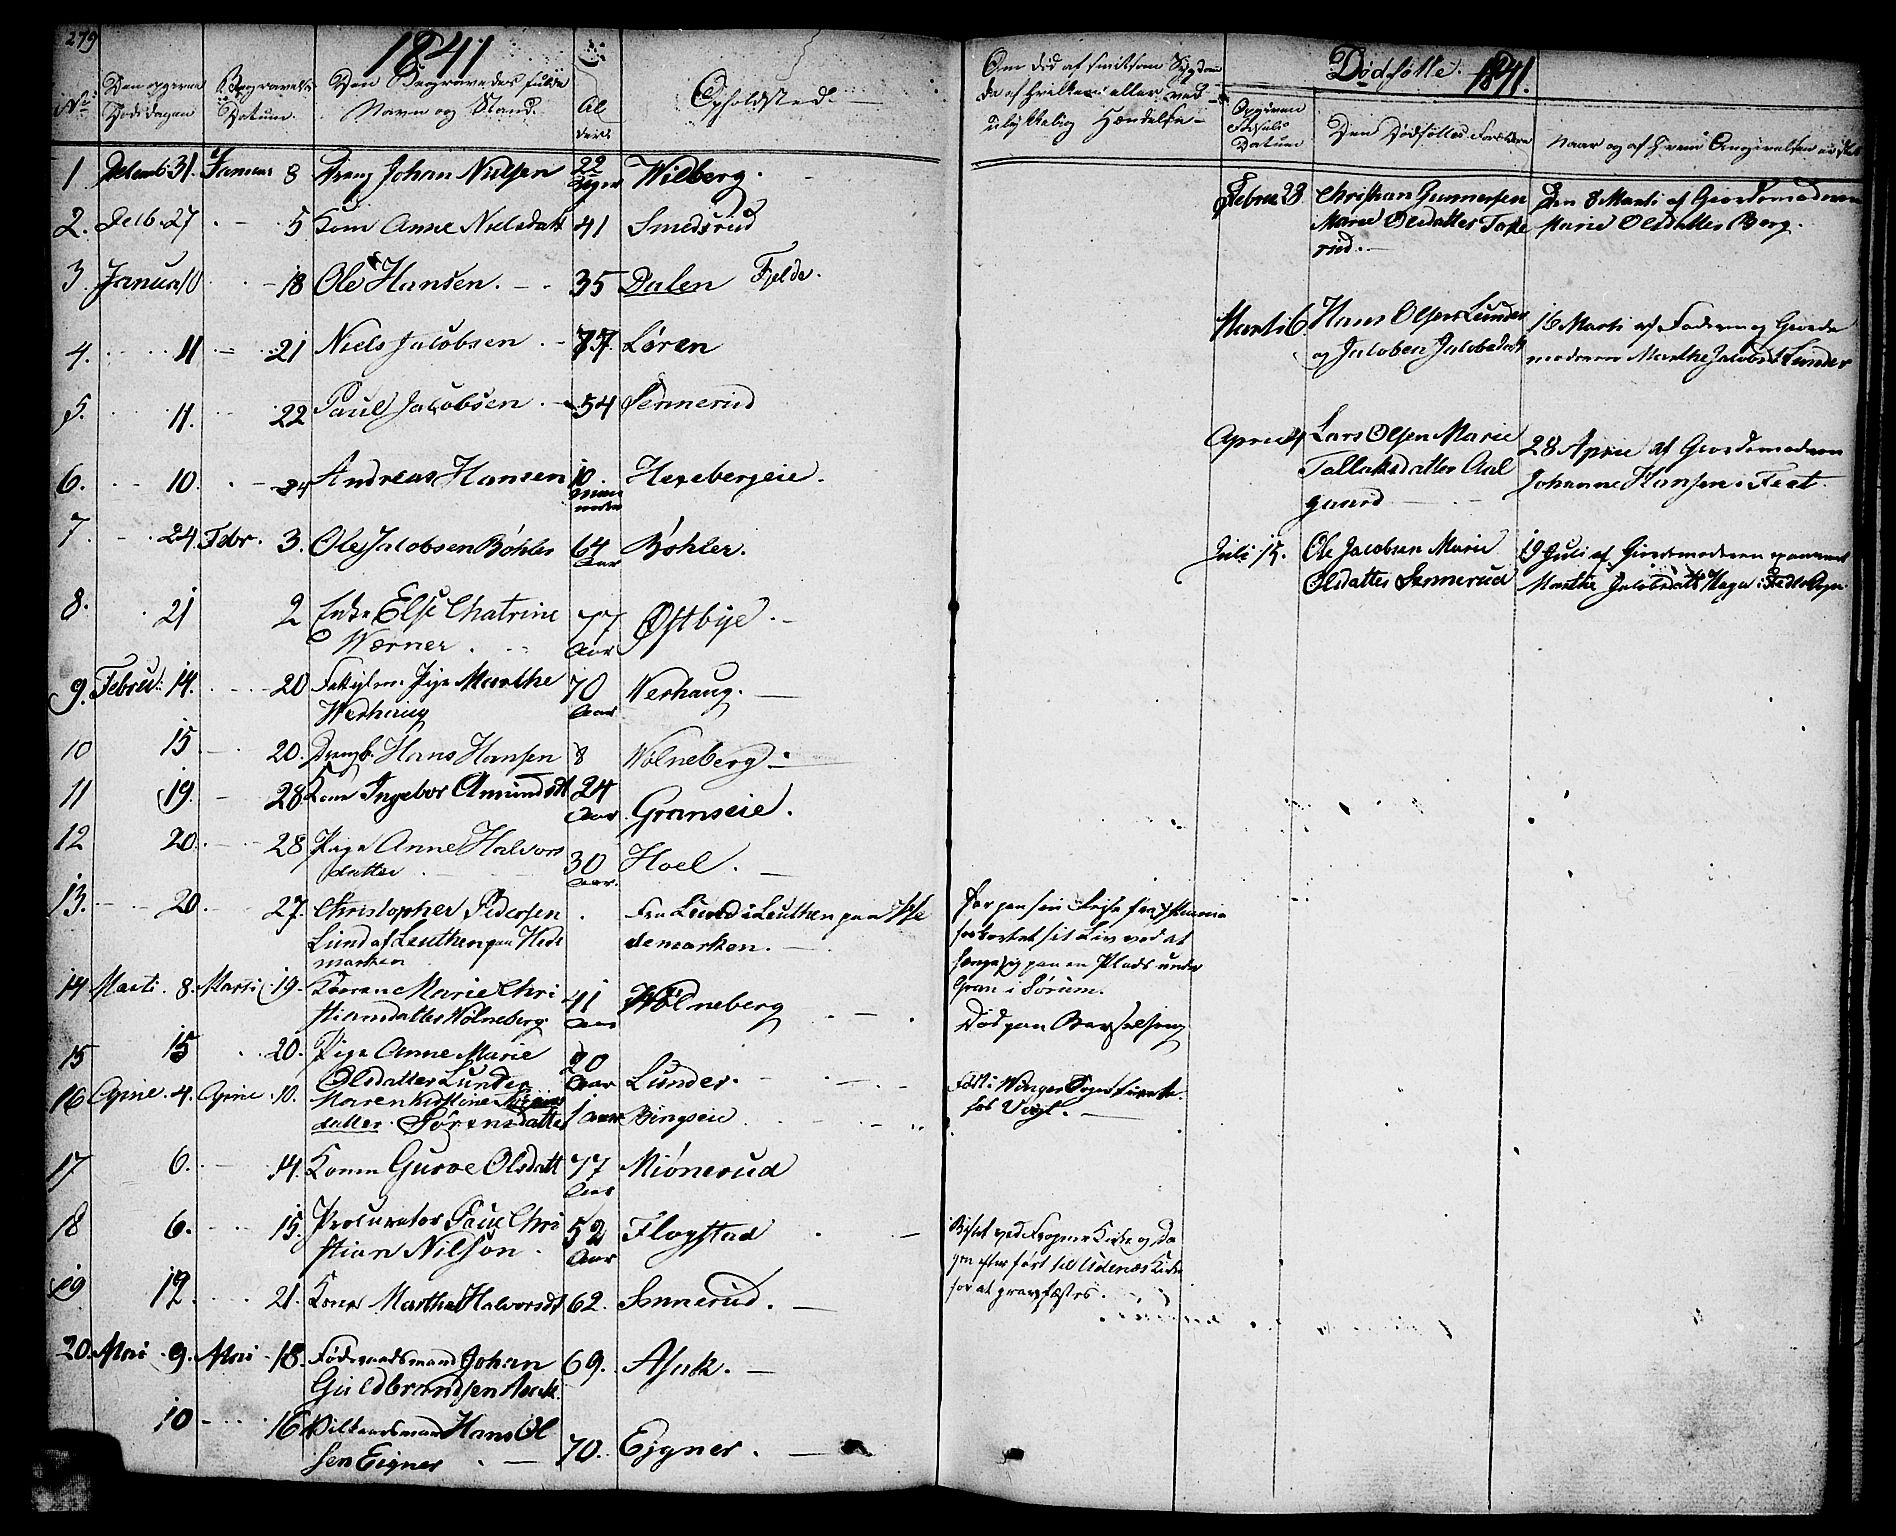 279
1841
No. Den opgivne Dødsdagen Begravelses Datum. Den Begravedes fulde Navn og Stand. Alder. Opholdsted.
1. Decemb 31. Januar 8 Johan Nielsen 22 Wilberg.
2. Decb. 27 5. Kone Anne Nielsdatt 41 Smedsrud
3. Janua 10 18 Ole Hansen. 35 Dalen Fjelde.
4. 11 21 Niels Jacobsen Løren
5. 11. 22 Paul Jacobsen. 54 Sennerud
6. 10. 24 Andreas Hansen 10. Maaneder Hexebergeie.
7. 24. Febr. 3. Ole Jacobsen Bøhler 64 Aar Bøhler.
8. 21 2 Enke Else Chatrine
Wærner. 77 Aar Østbye.
9. Februa: 14. 20 Pige Marthe
Werhaug 70 Aar Werhaug.
10 15 20. Hans Hansen 8 Wølneberg
11 19. 28 Kone Ingebor Amundsdt 24 Aar Granseie.
12 20. 28 Pige Anne Halvors
datter 30 Aar. Hoel.
13. 20 27. Christopher Pedersen
Lund af Leuthen paa Hede
marken Fra Lund i Leuthen paa He
demarken.
14 Marti 8. Marti 19. Konen Marie Chri
stiansdatter Wølneberg 41 Aar Wølneberg
15 15 20. Pige Anne Marie
Olsdatter Lunder 20 Aar Lunder.
16 Aprie 4. Aprie 10. Maren Kirstine
datter Sørensdatter 1 Aar Bingseie
17 6. 14. Konen Gurve Olsdatt 77 Aar Miønerud
18 6. 15. Procurator Paul Chri
stian Nilson. 52 Aar Flogstad
19 12. 21. Kone Marthe Halvorsdt 62. Sennerud.
20. Mai 9. Mai 18. Føderaadsmand Johan
Guldbrandsen Asak. 69. Asak.
10 16 Hans Ol
sen Eigner 70. Ejgner.
Om død af smitsom Sygdom
da af hvilken eller ved
ulykkelig Hændelse
sit Liv ved at
paa en Plads under
Gran i Sørum.
Død paa Barselseng
Født i Winger
ved Frogner Kirke og Da
gen efter ført til Udenæs Kirke
for at
Dødfødte. 1841.
Opgiven Fødsels Datum Den Dødfødtes Forældre Naar og af hvem Angivelsen er skeet
Februa 28. Christian Gunnersen
Marie Olsdatter Take
rud. Den 8 Marti af Giordemoderen
Marie Olsdatter Berg.
Marti 6. Hans Olsen Lunder
og Jacobsdatt 16 Marti af Faderen og Giorde
moderen Marthe Jacobsd. Lunder
Aprie Lars Olsen Marie
Tollaksdatter Aal
gaard 28 Aprie af Giordemoderen
Johanne Hansen
Juli 15. Ole Jacobsen Marie
Olsdatter Sennerud 19 Juli af Giordemoderen
Marthe Jacobsdatt